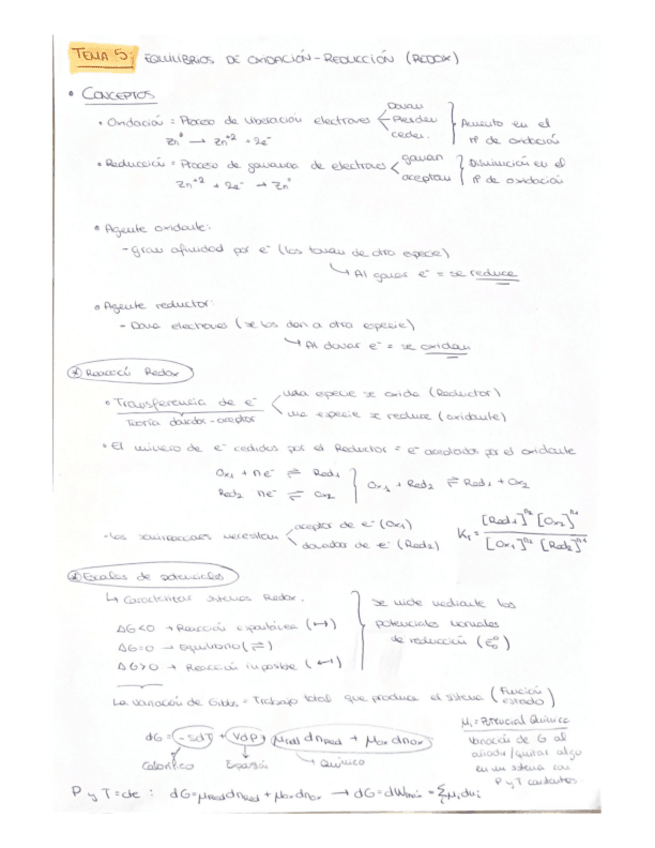 TEMA 5: EQUILIBRIOS DE OXIDACIÓN-REDUCCIÓN (REDOX)
• CONCEPTOS
• Oxidación = Proceso de liberación electrones < Donan Pierden ceden. } Aumento en el nº de oxidación
Zn⁰ → Zn⁺² + 2e⁻
• Reducción = Proceso de ganancia de electrones < ganan aceptan } Disminución en el nº de oxidación
Zn⁺² + 2e⁻ → Zn⁰
• Agente oxidante:
- Gran afinidad por e⁻ (los toman de otra especie)
↳ Al ganar e⁻ = se reduce
• Agente reductor:
- Dona electrones (se los dan a otra especie)
↳ Al donar e⁻ = se oxidan
Reacció Redox
• Transferencia de e⁻ < una especie se oxida (Reductor)
Teoría dador-aceptor
una especie se reduce (oxidante)
• El número de e⁻ cedidos por el Reductor = e⁻ aceptados por el oxidante
Ox₁ + ne⁻ ⇌ Red₁
Red₂ ne⁻ ⇌ Ox₂ } Ox₁ + Red₂ ⇌ Red₁ + Ox₂
- Las semirreacciones necesitan < aceptor de e⁻ (Ox₁)
donador de e⁻ (Red₂)
[Red₁]ⁿ² [Ox₂]ⁿ¹
[Ox₁]ⁿ² [Red₂]ⁿ¹
Escalas de potenciales
↳ Caracterizar sistemas Redox.
ΔG<0 → Reacción espontánea (↦)
ΔG=0 → Equilibrio (⇌)
ΔG>0 → Reacción imposible (↤)
se mide mediante los
potenciales normales
de reducción (ε₀⁰)
La variación de Gibbs = Trabajo total que produce el sistema (Función estado)
dG = -SdT + VdP + μred dnred + μox dnox
Calorífico Expansión → Químico
μᵢ = Potencial Químico
Variación de G al
añadir/quitar algo
en un sistema con
P y T constantes
P y T = cte : dG = μred dnred + μox dnox → dG = dWmáx = Σμᵢdnᵢ